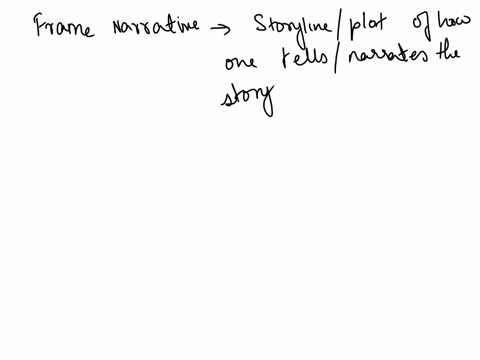 Frame narrative → Storyline/plot of how
one tells/narrates the
story